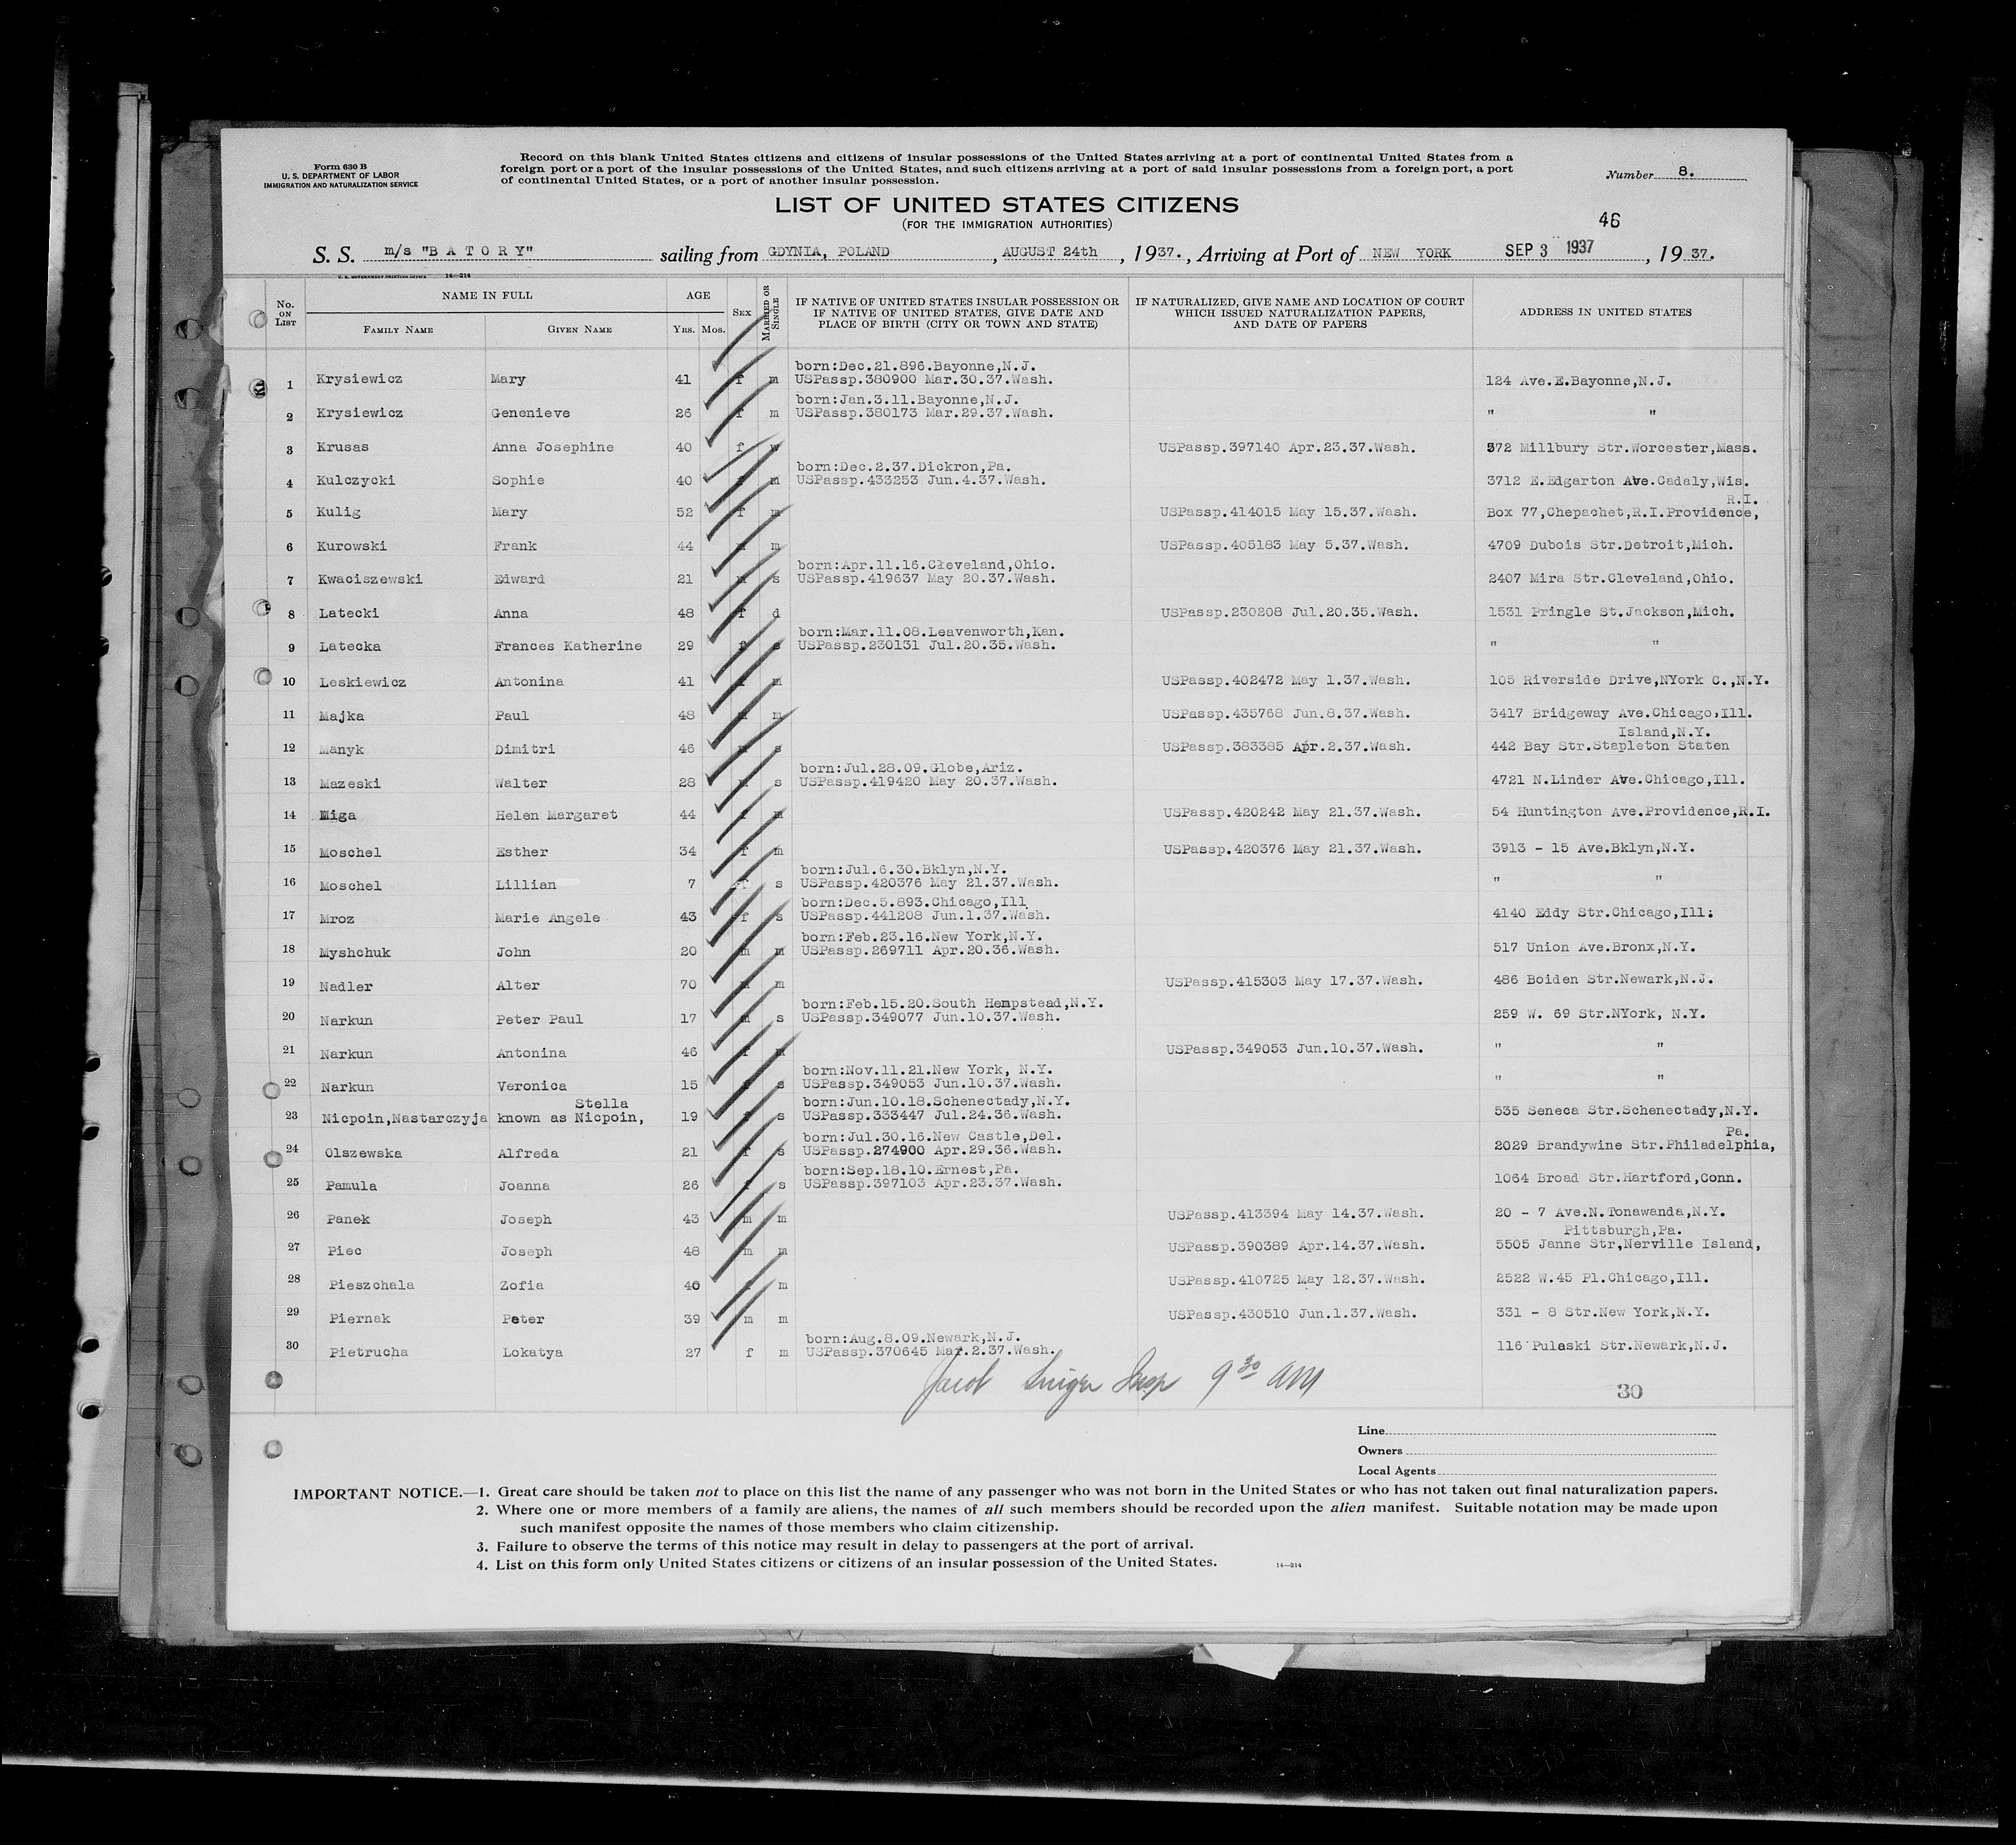 Form 630 B
U. S. DEPARTMENT OF LABOR
IMMIGRATION AND NATURALIZATION SERVICE
Record on this blank United States citizens and citizens of insular possessions of the United States arriving at a port of continental United States from a
foreign port or a port of the insular possessions of the United States, and such citizens arriving at a port of said insular possessions from a foreign port, a port
of continental United States, or a port of another insular possession.
Number 8.
LIST OF UNITED STATES CITIZENS
(FOR THE IMMIGRATION AUTHORITIES)
46
S. S. m/s "B A T O R Y" sailing from GDYNIA, POLAND, AUGUST 24th, 1937., Arriving at Port of NEW YORK SEP 3 1937, 1937.
U. S. GOVERNMENT PRINTING OFFICE 14—214
No. ON LIST
NAME IN FULL
AGE
SEX
MARRIED OR SINGLE
IF NATIVE OF UNITED STATES INSULAR POSSESSION OR IF NATIVE OF UNITED STATES, GIVE DATE AND PLACE OF BIRTH (CITY OR TOWN AND STATE)
IF NATURALIZED, GIVE NAME AND LOCATION OF COURT WHICH ISSUED NATURALIZATION PAPERS, AND DATE OF PAPERS
ADDRESS IN UNITED STATES
FAMILY NAME GIVEN NAME YRS. MOS.
born:Dec.21.896.Bayonne,N.J.
1 Krysiewicz Mary 41 f m USPassp.380900 Mar.30.37.Wash. 124 Ave.E.Bayonne,N.J.
born:Jan.3.11.Bayonne,N.J.
2 Krysiewicz Genenieve 26 f m USPassp.380173 Mar.29.37.Wash. " "
3 Krusas Anna Josephine 40 f w USPassp.397140 Apr.23.37.Wash. 572 Millbury Str.Worcester,Mass.
born:Dec.2.37.Dickron,Pa.
4 Kulczycki Sophie 40 f m USPassp.433253 Jun.4.37.Wash. 3712 E.Edgarton Ave.Cadaly,Wis.
R.I.
5 Kulig Mary 52 f m USPassp.414015 May 15.37.Wash. Box 77,Chepachet,R.I.Providence,
6 Kurowski Frank 44 m m USPassp.405183 May 5.37.Wash. 4709 Dubois Str.Detroit,Mich.
born:Apr.11.16.Cleveland,Ohio.
7 Kwaciszewski Edward 21 m s USPassp.419637 May 20.37.Wash. 2407 Mira Str.Cleveland,Ohio.
8 Latecki Anna 48 f d USPassp.230208 Jul.20.35.Wash. 1531 Pringle St.Jackson,Mich.
born:Mar.11.08.Leavenworth,Kan.
9 Latecka Frances Katherine 29 f s USPassp.230131 Jul.20.35.Wash. " "
10 Leskiewicz Antonina 41 f m USPassp.402472 May 1.37.Wash. 105 Riverside Drive,NYork C.,N.Y.
11 Majka Paul 48 m m USPassp.435768 Jun.8.37.Wash. 3417 Bridgeway Ave.Chicago,Ill.
Island,N.Y.
12 Manyk Dimitri 46 m s USPassp.383385 Apr.2.37.Wash. 442 Bay Str.Stapleton Staten
born:Jul.28.09.Globe,Ariz.
13 Mazeski Walter 28 m s USPassp.419420 May 20.37.Wash. 4721 N.Linder Ave.Chicago,Ill.
14 Miga Helen Margaret 44 f m USPassp.420242 May 21.37.Wash. 54 Huntington Ave.Providence,R.I.
15 Moschel Esther 34 f m USPassp.420376 May 21.37.Wash. 3913 - 15 Ave.Bklyn,N.Y.
born:Jul.6.30.Bklyn,N.Y.
16 Moschel Lillian 7 f s USPassp.420376 May 21.37.Wash. " "
born:Dec.5.893.Chicago,Ill
17 Mroz Marie Angele 43 f s USPassp.441208 Jun.1.37.Wash. 4140 Eddy Str.Chicago,Ill.
born:Feb.23.16.New York,N.Y.
18 Myshchuk John 20 m m USPassp.269711 Apr.20.36.Wash. 517 Union Ave.Bronx,N.Y.
19 Nadler Alter 70 m m USPassp.415303 May 17.37.Wash. 486 Boiden Str.Newark,N.J.
born:Feb.15.20.South Hempstead,N.Y.
20 Narkun Peter Paul 17 m s USPassp.349077 Jun.10.37.Wash. 259 W. 69 Str.NYork, N.Y.
21 Narkun Antonina 46 f m USPassp.349053 Jun.10.37.Wash. " "
born:Nov.11.21.New York, N.Y.
22 Narkun Veronica 15 f s USPassp.349053 Jun.10.37.Wash. " "
Stella born:Jun.10.18.Schenectady,N.Y.
23 Nicpoin,Nastarczyja known as Nicpoin, 19 f s USPassp.333447 Jul.24.36.Wash. 535 Seneca Str.Schenectady,N.Y.
born:Jul.30.16.New Castle,Del. Pa.
24 Olszewska Alfreda 21 f s USPassp.274900 Apr.29.36.Wash. 2029 Brandywine Str.Philadelphia,
born:Sep.18.10.Ernest,Pa.
25 Pamula Joanna 26 f s USPassp.397103 Apr.23.37.Wash. 1064 Broad Str.Hartford,Conn.
26 Panek Joseph 43 m m USPassp.413394 May 14.37.Wash. 20 - 7 Ave.N.Tonawanda,N.Y.
Pittsburgh,Pa.
27 Piec Joseph 48 m m USPassp.390389 Apr.14.37.Wash. 5505 Janne Str,Nerville Island,
28 Pieszchala Zofia 40 f m USPassp.410725 May 12.37.Wash. 2522 W.45 Pl.Chicago,Ill.
29 Piernak Peter 39 m m USPassp.430510 Jun.1.37.Wash. 331 - 8 Str.New York,N.Y.
born:Aug.8.09.Newark,N.J.
30 Pietrucha Lokatya 27 f m USPassp.370645 Mar.2.37.Wash. 116 Pulaski Str.Newark,N.J.
Jacob Insp 9 30 AM
30
Line
Owners
Local Agents
IMPORTANT NOTICE.—1. Great care should be taken not to place on this list the name of any passenger who was not born in the United States or who has not taken out final naturalization papers.
2. Where one or more members of a family are aliens, the names of all such members should be recorded upon the alien manifest. Suitable notation may be made upon
such manifest opposite the names of those members who claim citizenship.
3. Failure to observe the terms of this notice may result in delay to passengers at the port of arrival.
4. List on this form only United States citizens or citizens of an insular possession of the United States. 14—214